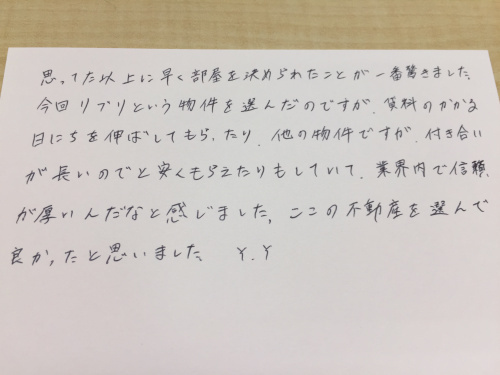 思ってた以上に早く部屋を決められたことが一番驚きました。
今回リブリという物件を選んだのですが、賃料のかかる
日にちを伸ばしてもらったり、他の物件ですが、付き合い
が長いのでと安くもらえたりもしていて、業界内で信頼
が厚いんだなと感じました。ここの不動産を選んで
良かったと思いました。 Y.Y